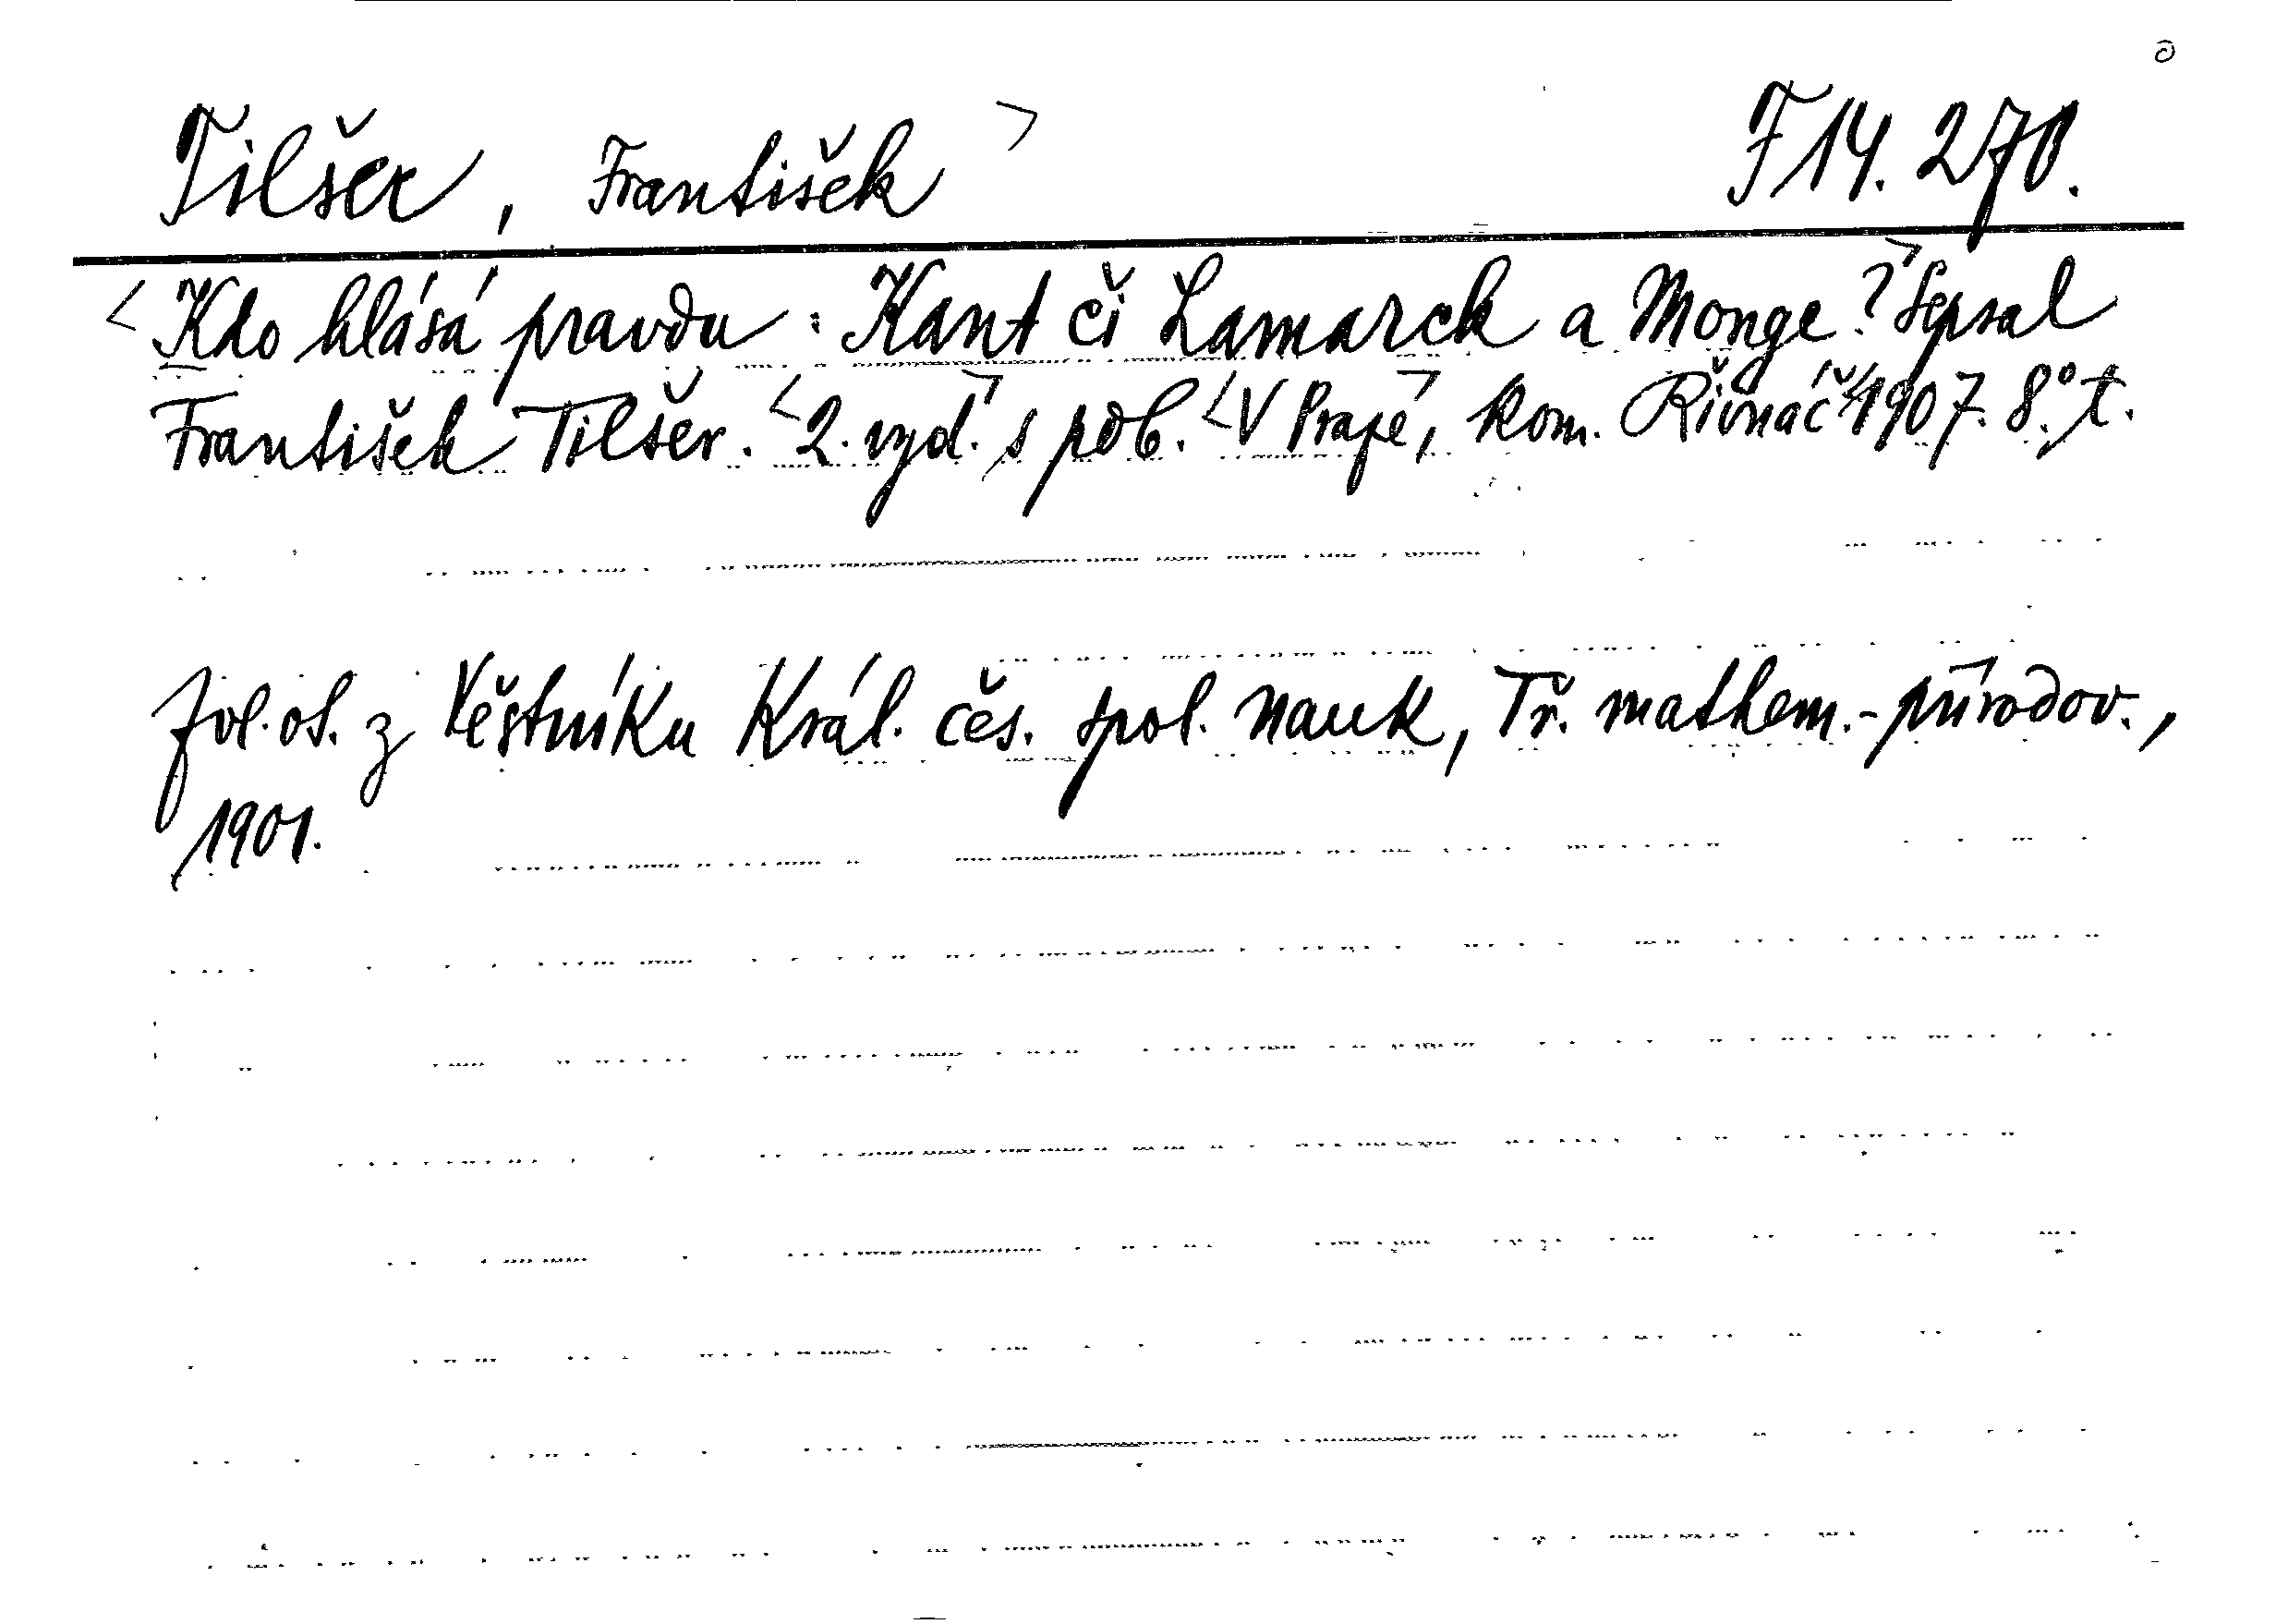 Tilšer, František F 14. 270.
Kdo hlásá pravdu: Kant či Lamarck a Monge? Sepsal
František Tilšer. 2. vyd. s pod. V Praze, kom. Řivnáč 1907. 8.° t.
Zvl. ot. z Věstníku Král. čes. spol. Nauk, Tř. mathem.-přírodov.,
1901.